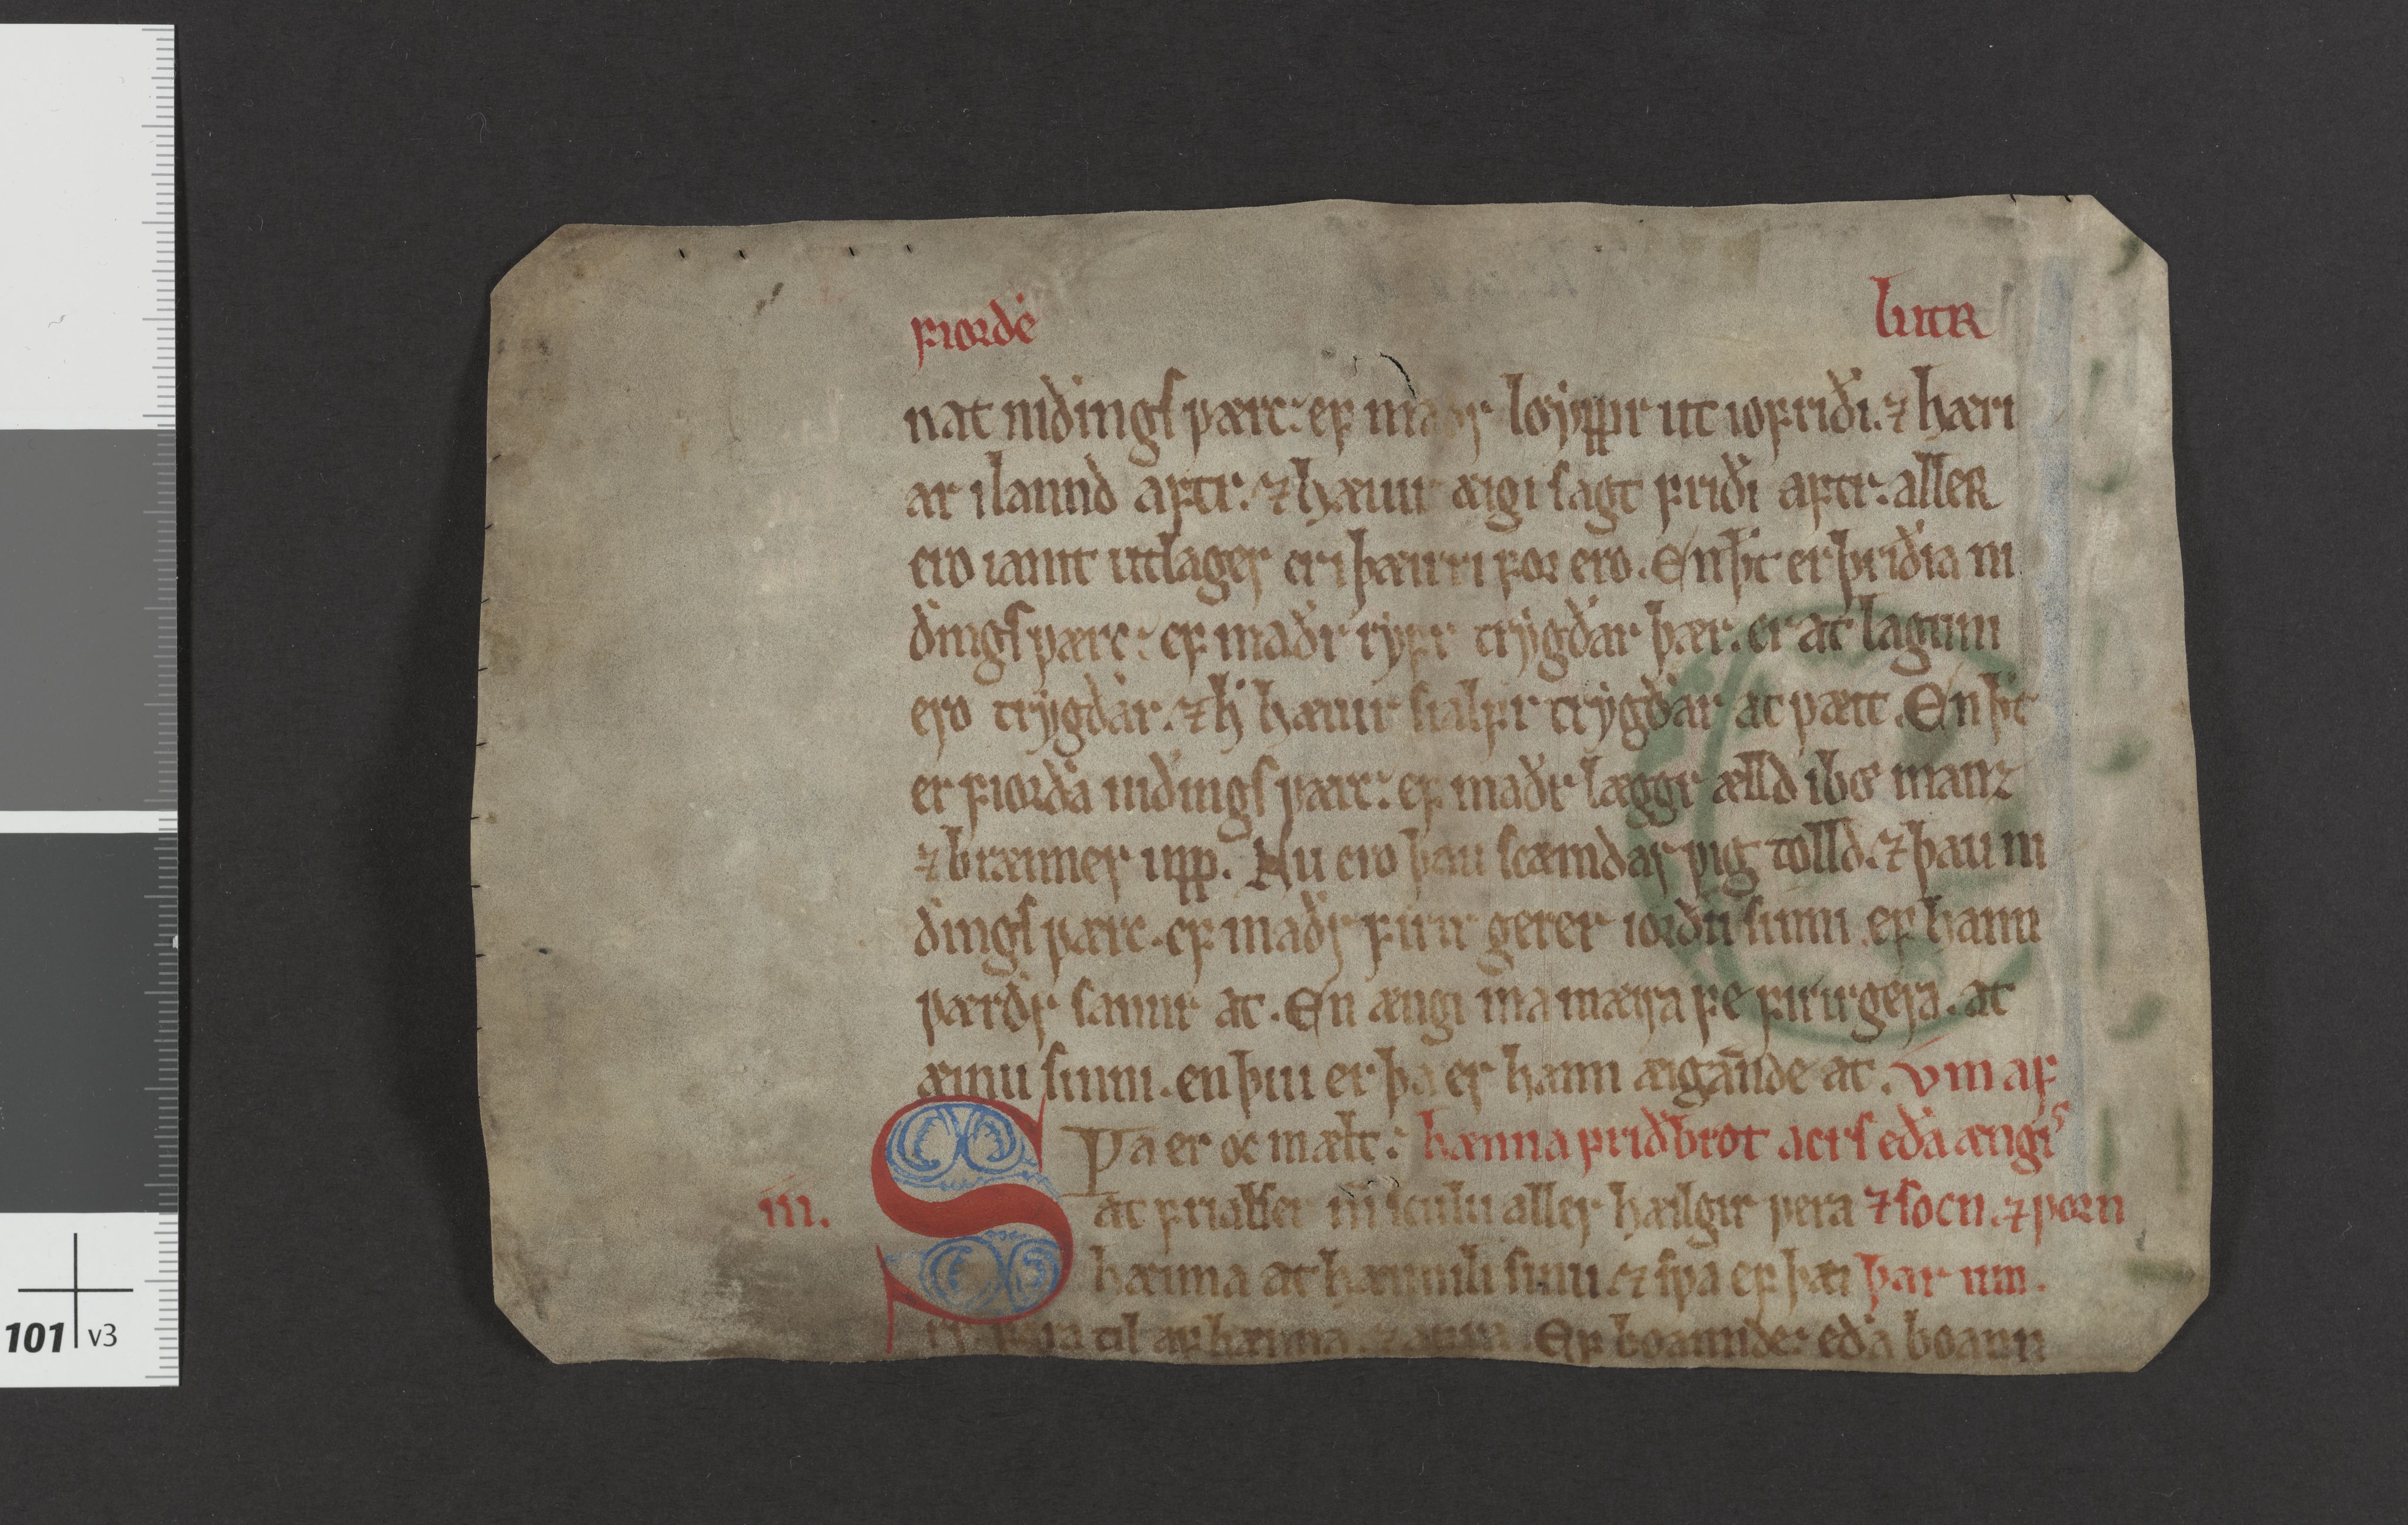 fiorðe lutR
nat niðings værc. ef maðr løyppr ut i ofriði. ⁊ hæri
ar i lannd aftr. ⁊ hævir æigi sagt friði aftr. alleR
ero iamt utlager er i hærri for ero. En þꞇ er þriðia ni
ðings værc. ef maðr ryfr trygðar þær. er at lagum
ero trygðar. ⁊ hꞌ hævir sialfr trygðar at vætt. En þꞇ
er fiorða niðings værc. ef maðr læggr ælld i bø manz
⁊ brænner upp. Nu ero þau scæmdar vig tolld. ⁊ þau ni
ðings værc. ef maðr firir gerer iorðu sinni. ef hann
værðr sannr at. En ængi ma mæira fe firirgera. at
æinu sinni. en þui er þa er hann æigande at. vm af
SVa er oc mælt. hænna friðbrot acrs eða ængi
iii. at frialser mͫ sculu aller hæilgir vera ⁊ socn. ⁊ vorn
hæima at hæimili sinu. ⁊ sva ef þæi þar um.
til af hæima. Ef boannde. eða boann